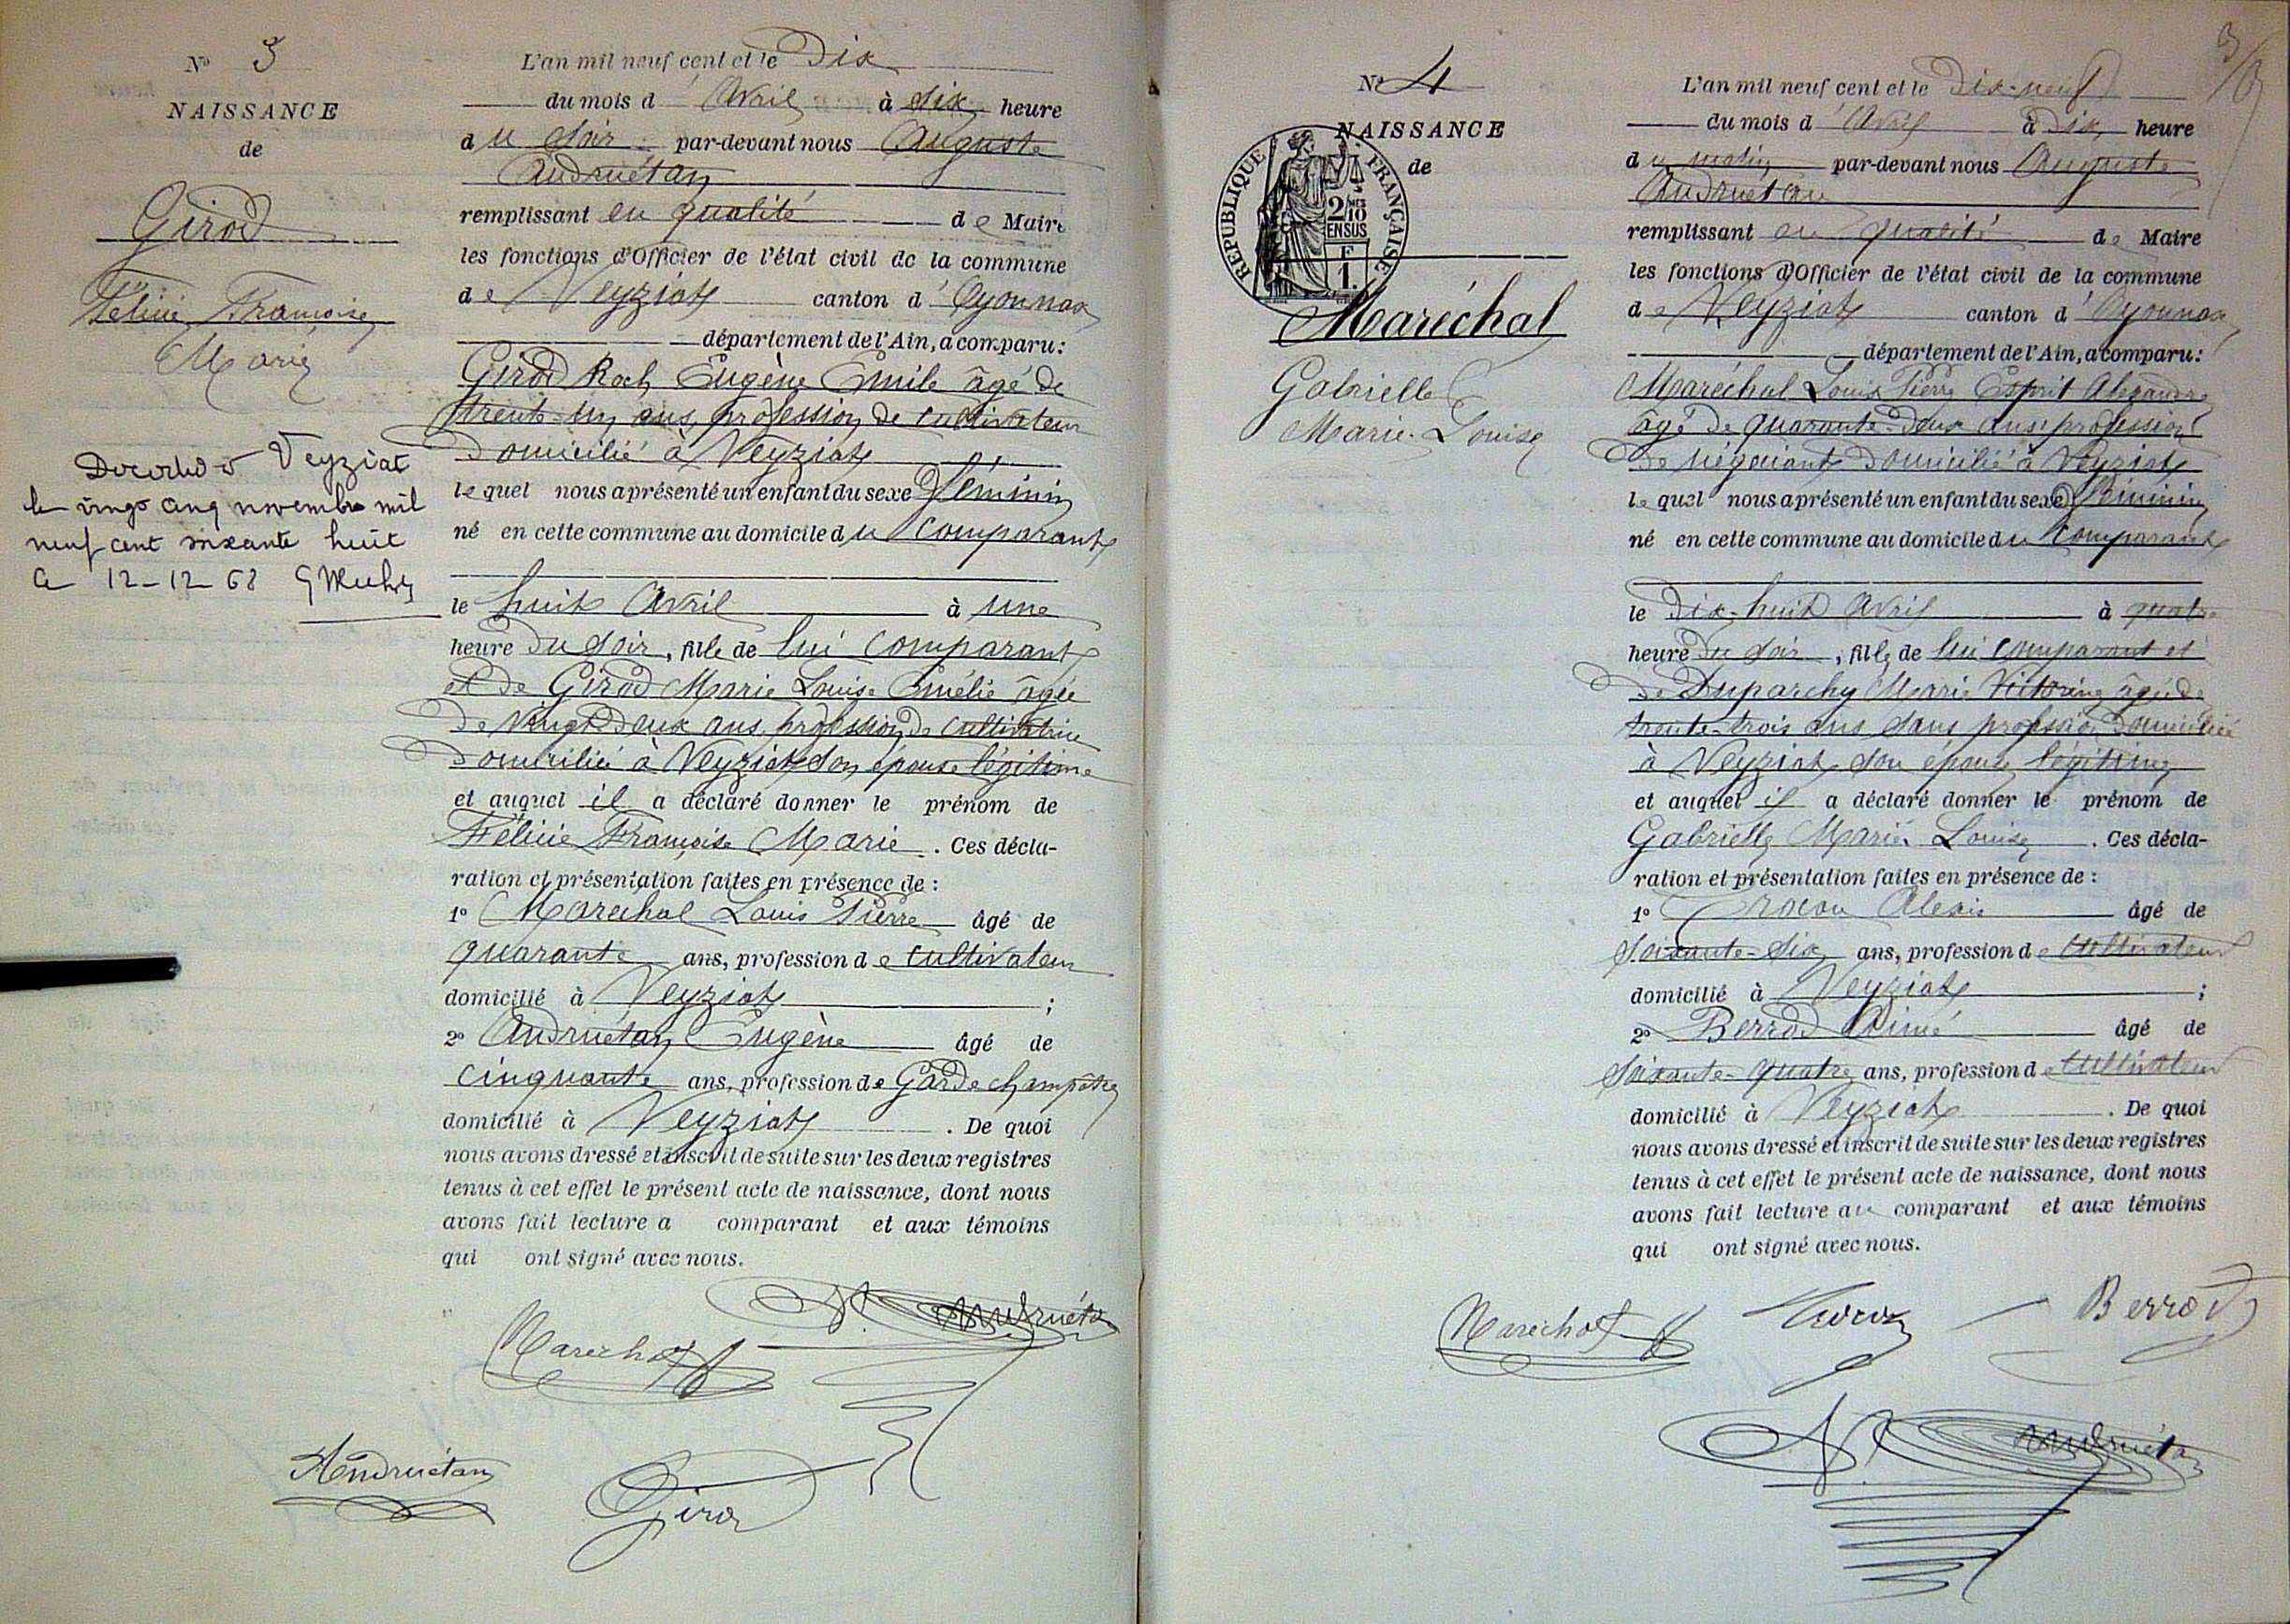 N° 3
NAISSANCE
de
Girod
Félicie Françoise
Marie
Décédée à Veyziat
le vingt cinq novembre mil
neuf cent soixante huit
le 12-12-68
L'an mil neuf cent et le Dix
du mois d' Avril à six heure
du soir par-devant nous Auguste
Andruétan
remplissant en qualité de Maire
les fonctions d'Officier de l'état civil de la commune
de Veyziat canton d' Oyonnax
département de l'Ain, a comparu:
Girod Roch Eugène Emile âgé de
trente un ans, profession de cultivateur
domicilié à Veyziat
lequel nous a présenté un enfant du sexe féminin
né en cette commune au domicile du comparant
le huit Avril à une
heure du soir, fille de lui comparant
et de Girod Marie Louise Emélie âgée
de vingt deux ans profession de cultivatrice
domiciliée à Veyziat son épouse légitime
et auquel il a déclaré donner le prénom de
Félicie Françoise Marie. Ces décla-
ration et présentation faites en présence de :
1° Maréchal Louis Pierre âgé de
quarante ans, profession de cultivateur
domicilié à Veyziat ;
2° Andruétan Eugène âgé de
cinquante ans, profession de Garde champêtre
domicilié à Veyziat . De quoi
nous avons dressé et inscrit de suite sur les deux registres
tenus à cet effet le présent acte de naissance, dont nous
avons fait lecture a comparant et aux témoins
qui ont signé avec nous.
Andruétan
Marechal
Andruétan
Girod
3
N° 4
NAISSANCE
de
REPUBLIQUE FRANÇAISE
2/10
EN SUS
F
1.
Maréchal
Gabrielle
Marie-Louise
L'an mil neuf cent et le Dix-neuf
du mois d' Avril à Dix heure
du matin par-devant nous Auguste
Andruétan
remplissant en qualité de Maire
les fonctions d'Officier de l'état civil de la commune
de Veyziat canton d' Oyonnax
département de l'Ain, a comparu:
Maréchal Louis Pierre Esprit Alexandre
âgé de quarante-deux ans profession
de négociant domicilié à Veyziat
lequel nous a présenté un enfant du sexe féminin
né en cette commune au domicile du comparant
le Dix-huit Avril à quatre
heure du soir, fille de lui comparant et
de Duparchy Marie Victorine âgée de
trente-trois ans sans profession domiciliée
à Veyziat son épouse légitime
et auquel il a déclaré donner le prénom de
Gabrielle Marie Louise . Ces décla-
ration et présentation faites en présence de :
1° Alexis âgé de
soixante-six ans, profession de cultivateur
domicilié à Veyziat ;
2° Berrod Aimé âgé de
soixante-quatre ans, profession de cultivateur
domicilié à Veyziat . De quoi
nous avons dressé et inscrit de suite sur les deux registres
tenus à cet effet le présent acte de naissance, dont nous
avons fait lecture au comparant et aux témoins
qui ont signé avec nous.
Marechal Berrod
Andruétan